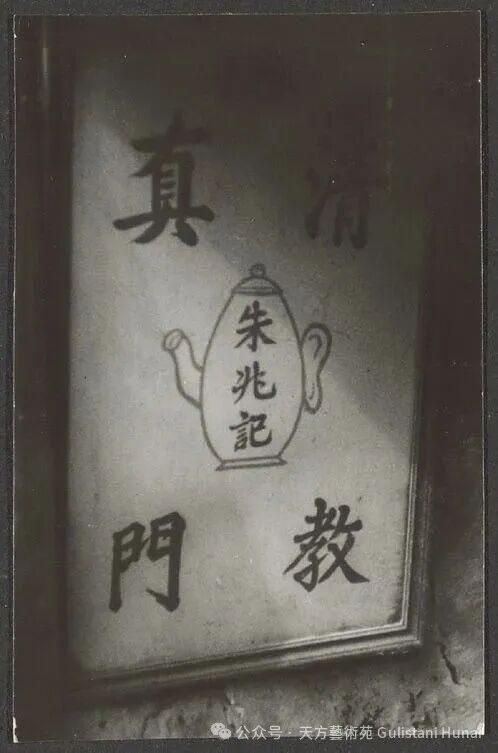 清真
朱兆記
教門
公众号 · 天方藝術苑 Gulistani Hunar